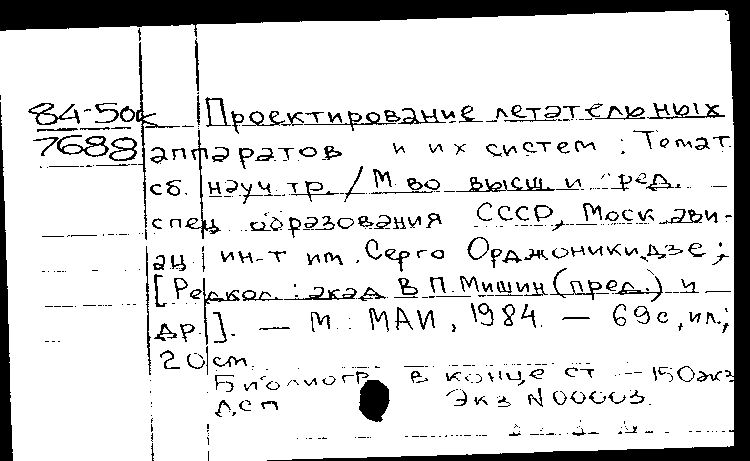 84-50к Проектирование летательных
7688 аппаратов и их систем : Темат.
сб. науч. тр. / М-во высш. и сред.
спец. образования СССР, Моск. ави-
ац. ин-т им. Серго Орджоникидзе ;
[Редкол. : акад. В.П. Мишин (пред.) и
др.]. — М. : МАИ, 1984. — 69 с., ил.;
20 см.
Библиогр. в конце ст. — 150 экз.
ДСП Экз. N 00003.